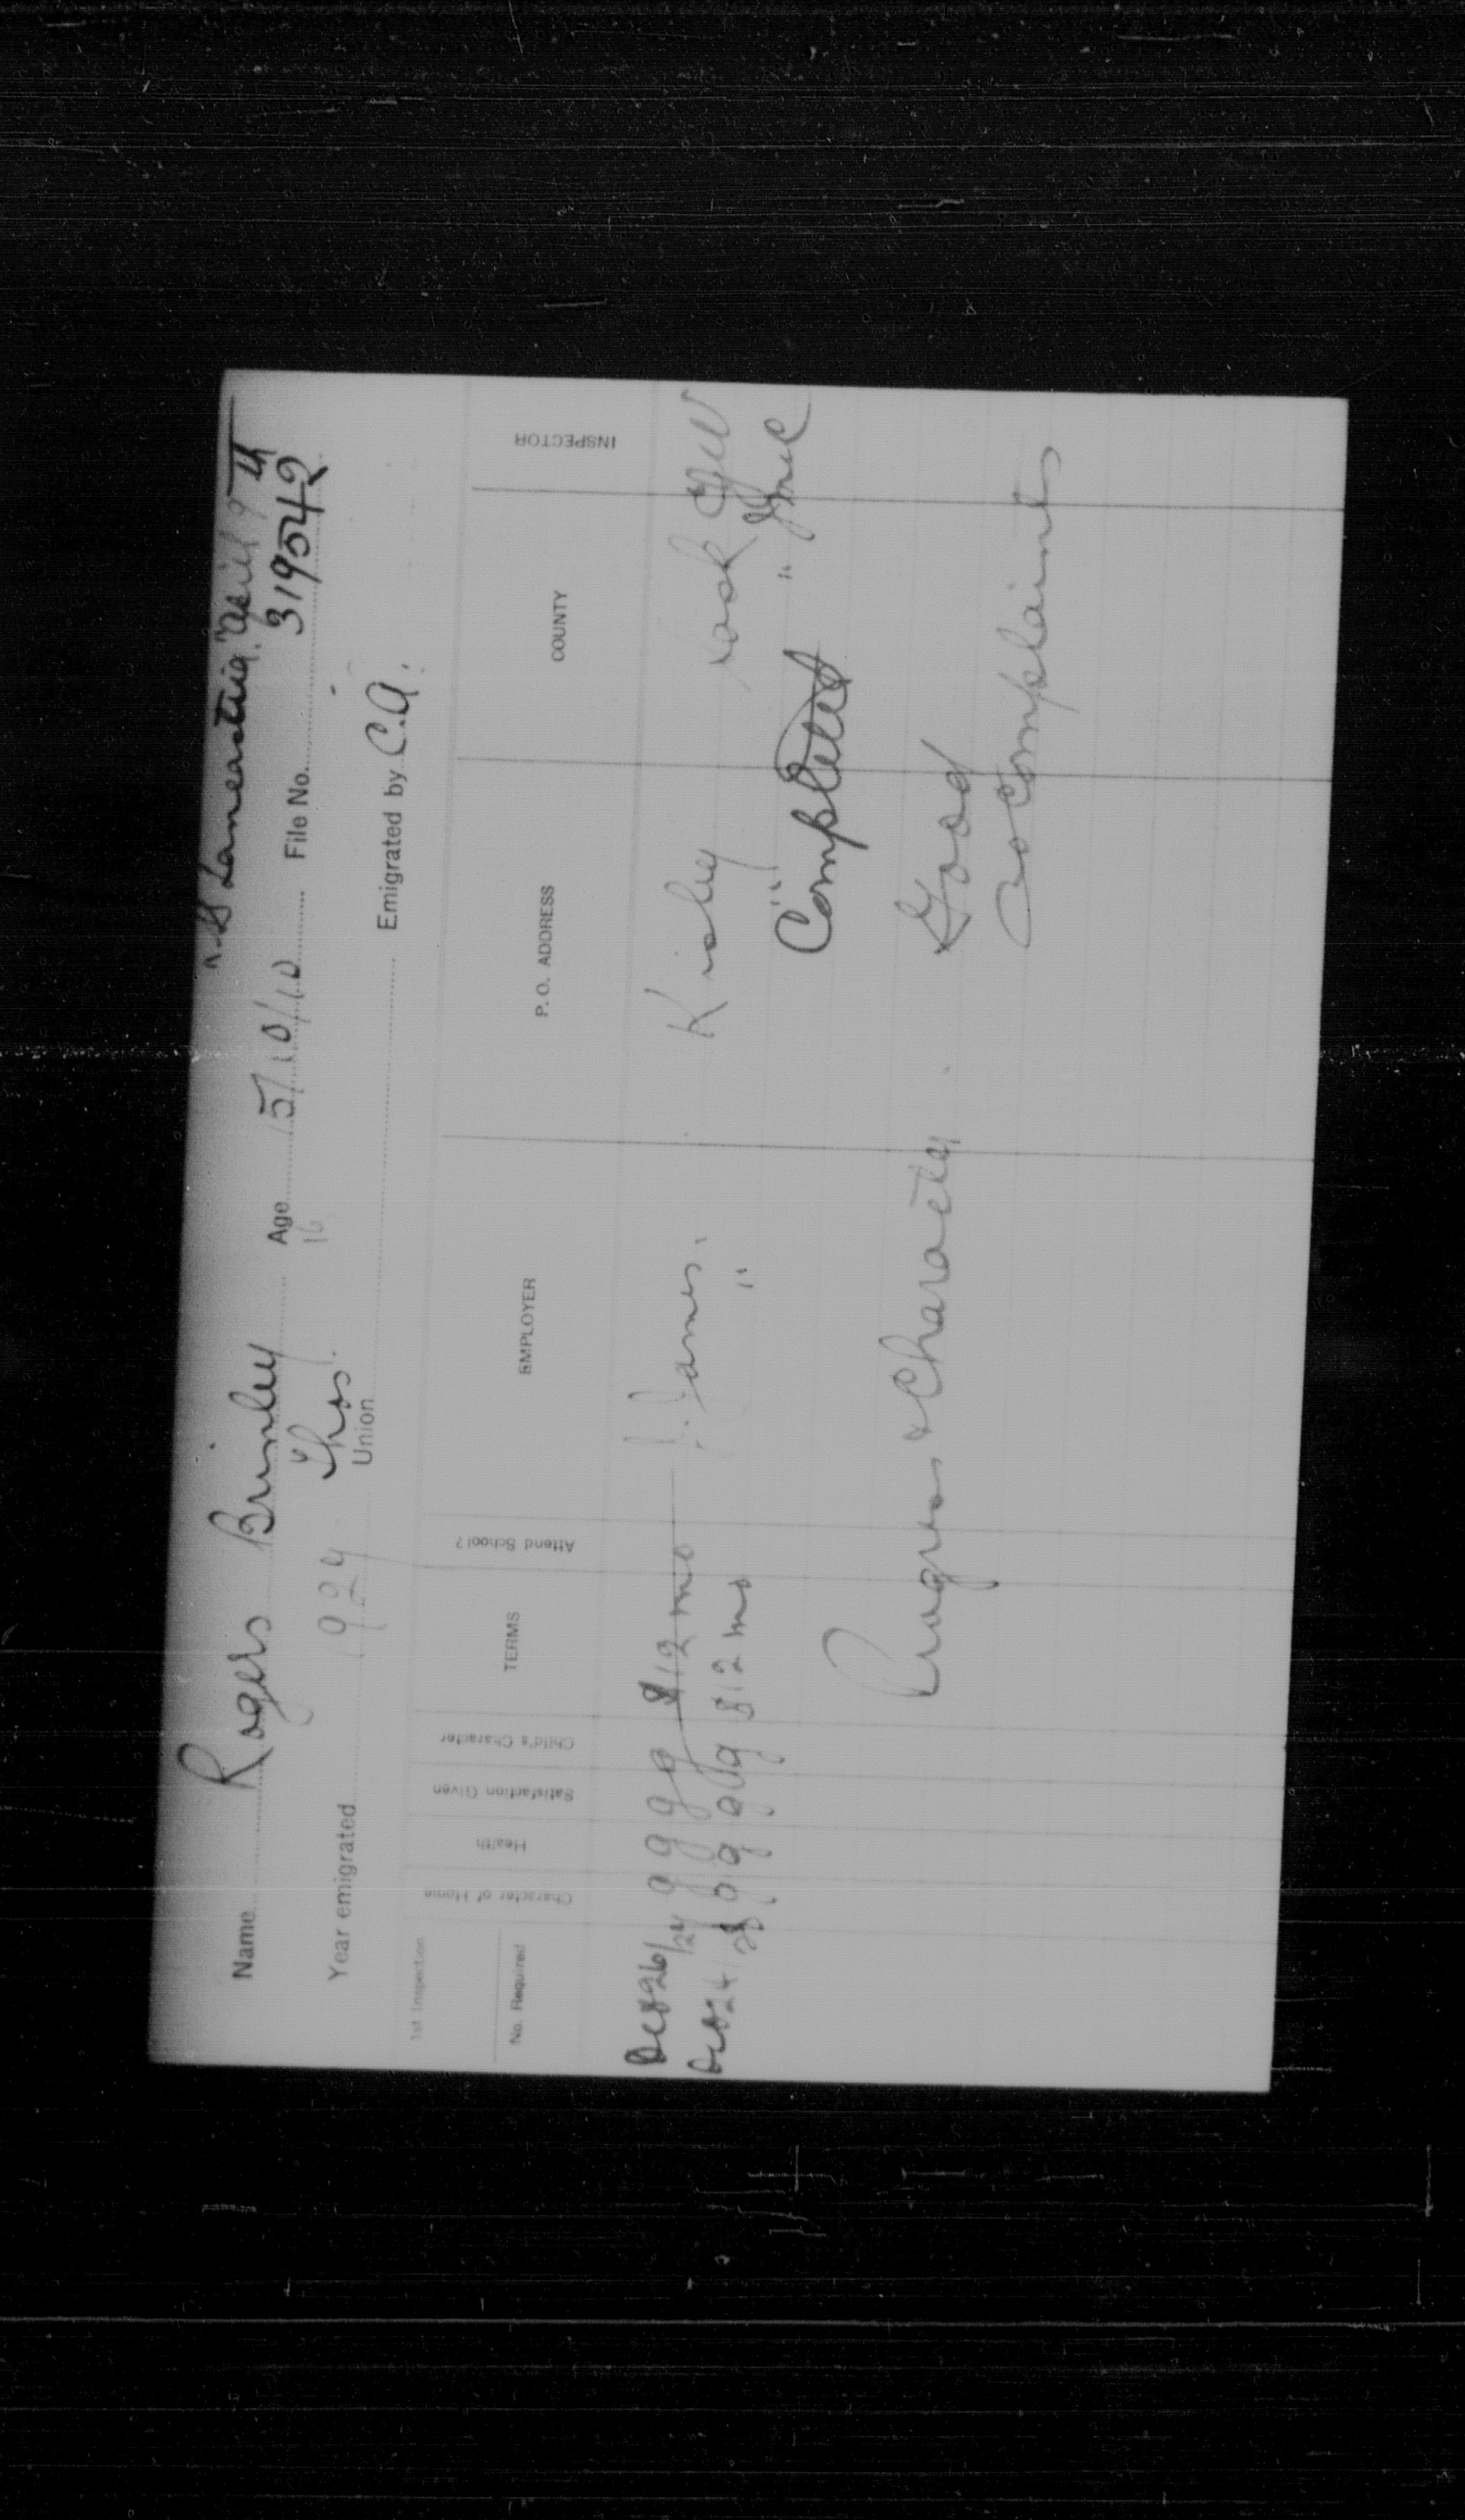 S.S. Lancastria. April 9th
Name Rogers Brinley Age 15/10/10 File No. 319542
16
Year emigrated 1924 Thos. Emigrated by C.A.
Union
1st Inspection
No. Required Character of Home Health Satisfaction Given Child's Character TERMS Attend School? EMPLOYER P. O. ADDRESS COUNTY INSPECTOR
Dec 26/24 g g g g $12 mo J. James. Kisbey Sask
Dec 24 g g g g $12 mo " " "
Completed
Progress & Character Good
No Complaints